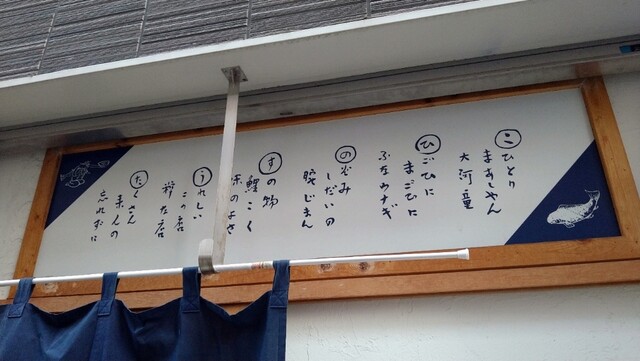 こひとり
まあしゃん
大河童
ひごひに
まごひに
ふなウナギ
のぞみ
しだいの
腕じまん
すの物
鯉こく
味のよさ
うれしい
この店
粋な店
たくさん
来人の
忘れずに